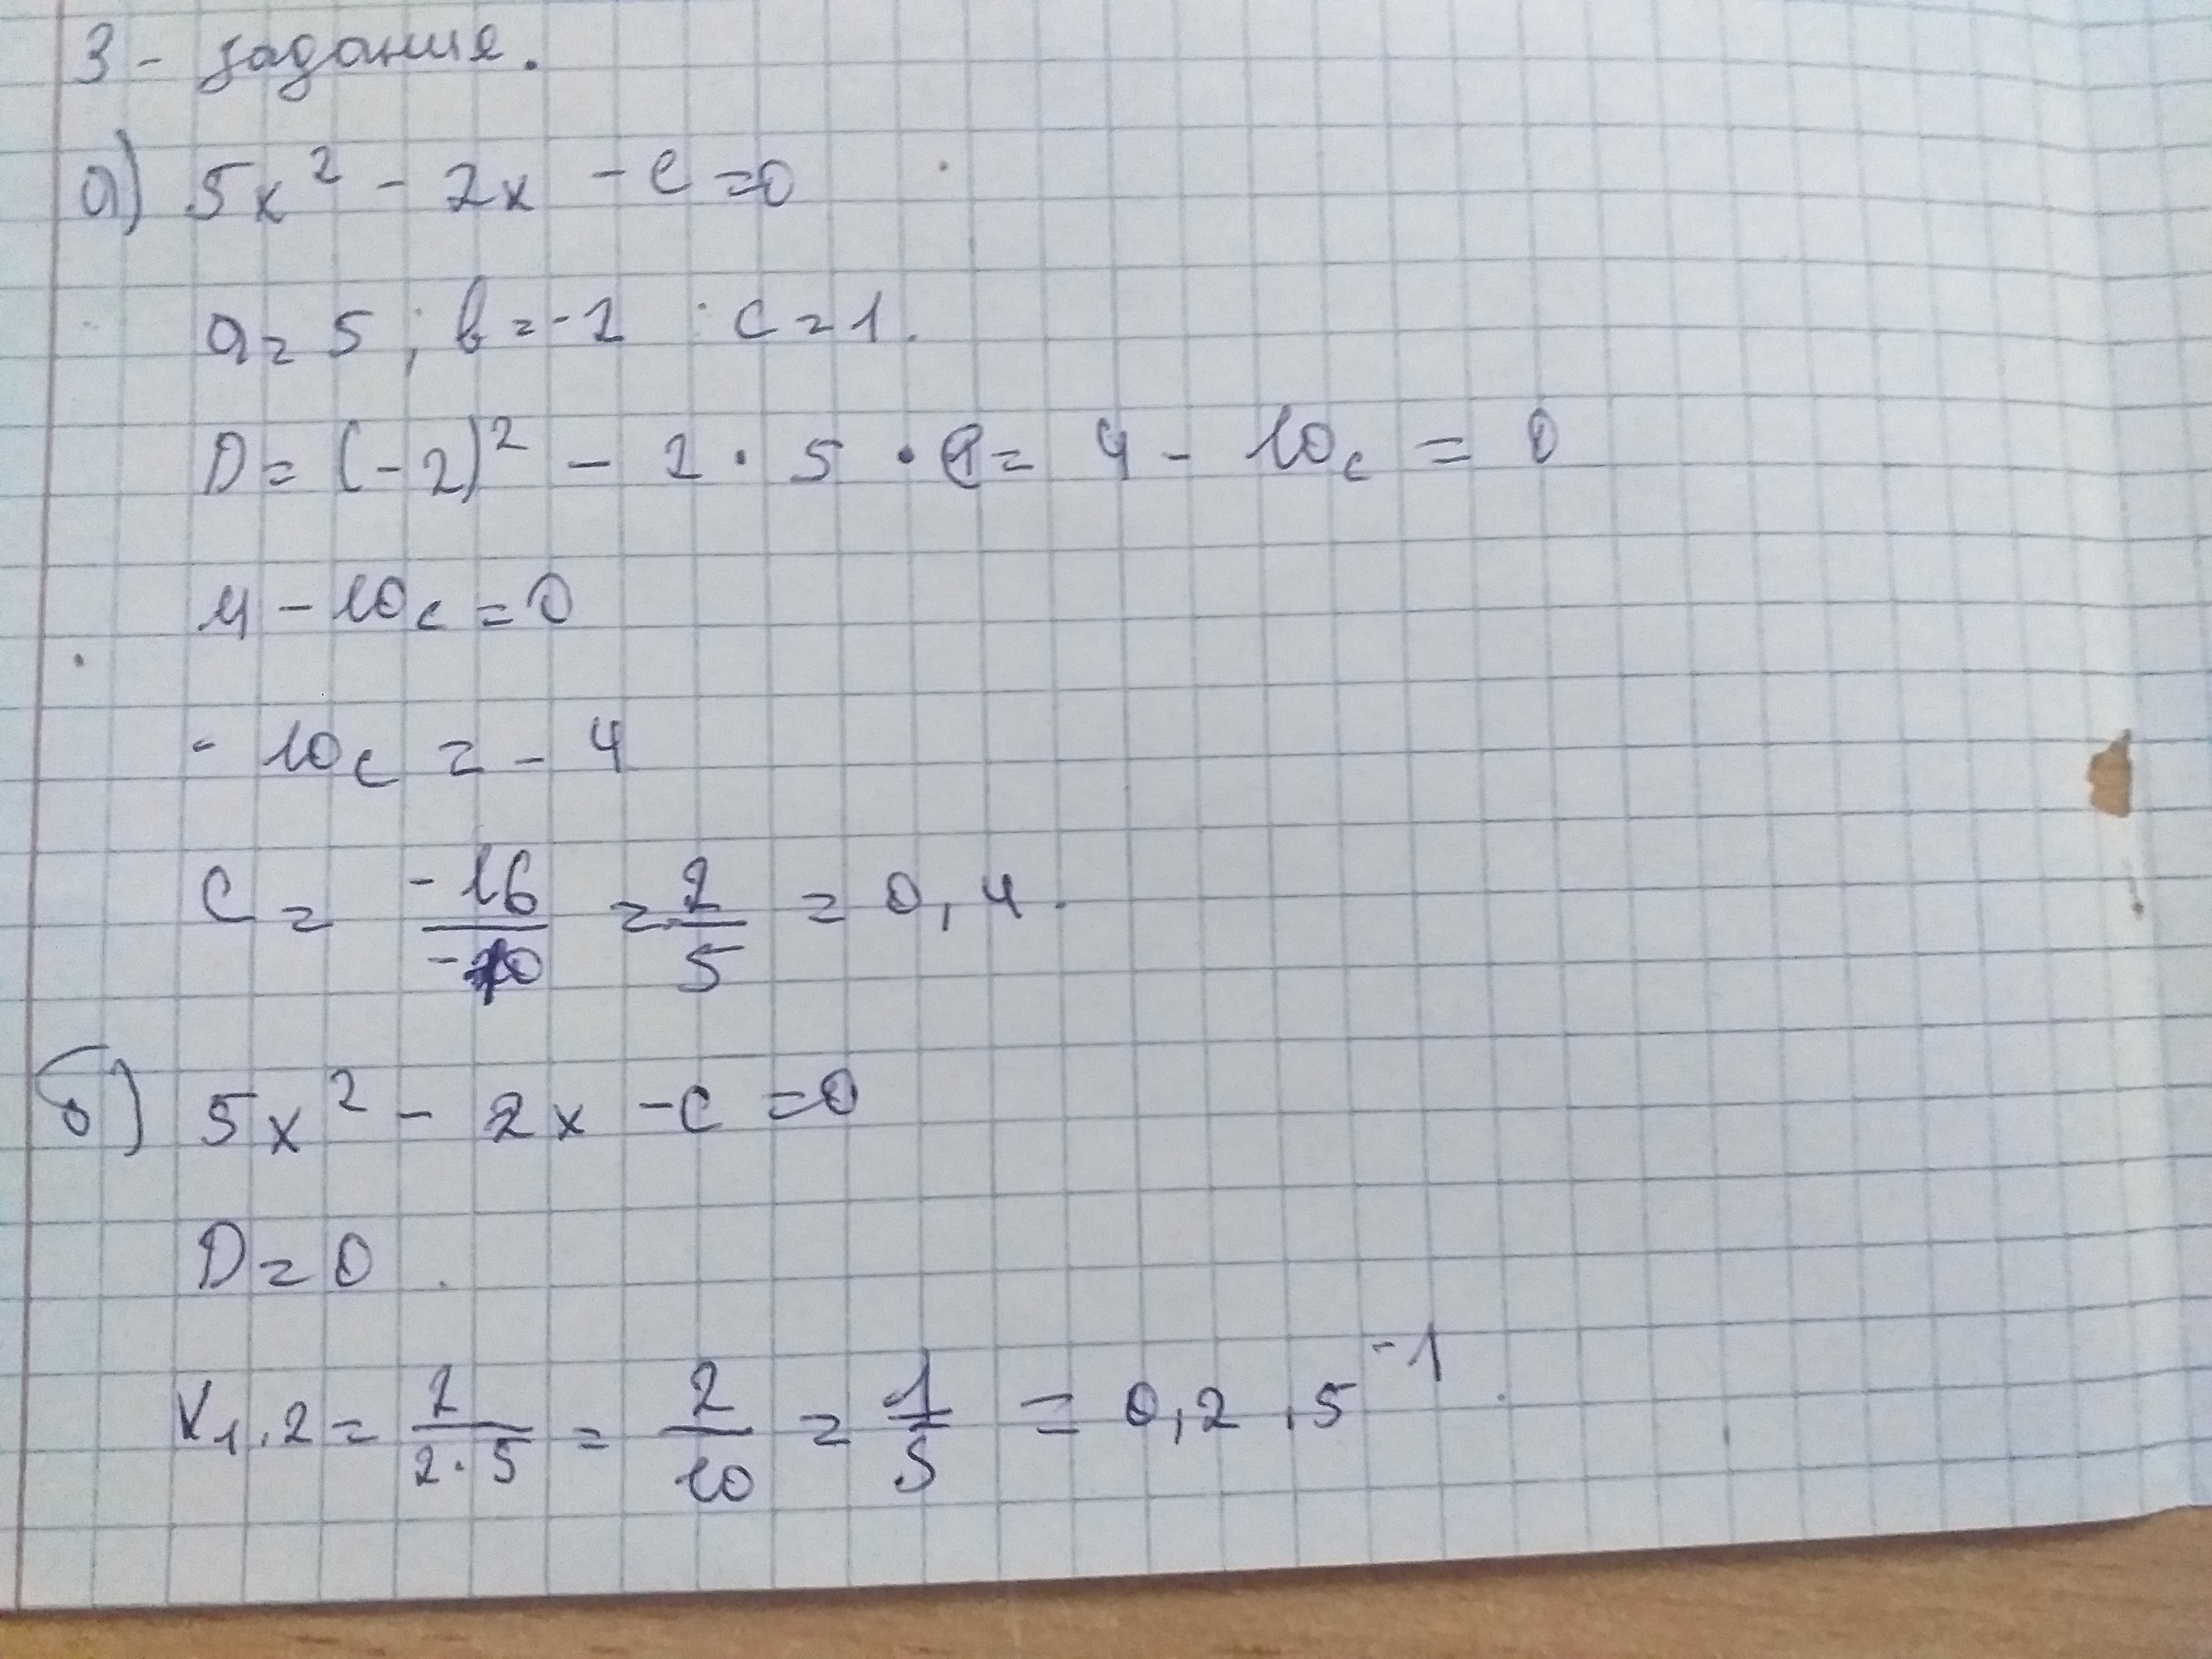 3 - задание.
а) 5x² - 2x - c = 0
a = 5 ; b = -2 ; c = 1.
D = (-2)² - 2 · 5 · c = 4 - 10c = 0
4 - 10c = 0
- 10c = - 4
C = -16/-10 = 2/5 = 0,4.
б) 5x² - 2x - c = 0
D = 0.
X₁,₂ = 2/2·5 = 2/10 = 1/5 = 0,2 . 5⁻¹.